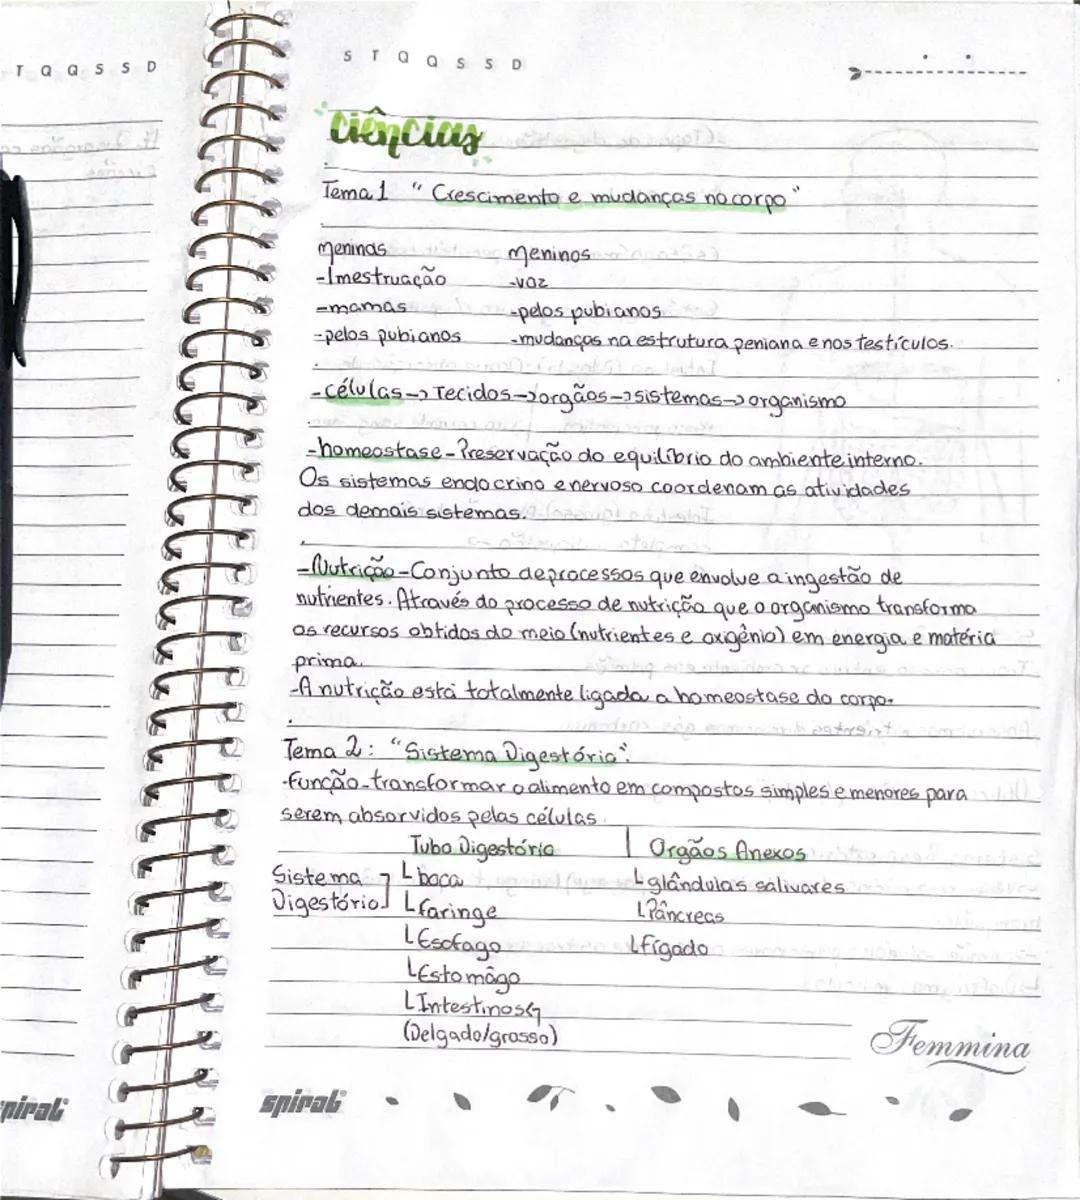 T Q Q S S D
S T Q Q S S D
Ciências
Tema 1 " Crescimento e mudanças no corpo"
meninas meninos
-1mestruação -voz
-mamas -pelos pubianos
-pelos pubianos -mudanças na estrutura peniana e nos testículos.
-células-> Tecidos->orgãos->sistemas->organismo
-homeostase-Preservação do equilíbrio do ambiente interno.
Os sistemas endocrino e nervoso coordenam as atividades
dos demais sistemas.
-Nutrição-Conjunto de processos que envolve a ingestão de
nutrientes. Através do processo de nutrição que o organismo transforma
os recursos obtidos do meio (nutrientes e oxigênio) em energia e matéria
prima.
-A nutrição está totalmente ligada a homeostase do corpo.
Tema 2: "Sistema Digestório".
-função-transformar o alimento em compostos simples e menores para
serem absorvidos pelas células.
Tubo Digestório | Orgãos Anexos
Sistema Digestório] Lboca Lglândulas salivares
Lfaringe LPâncreas
LEsofago Lfígado
LEstomâgo
LIntestinos
(Delgado/grosso)
Femmina
spiral